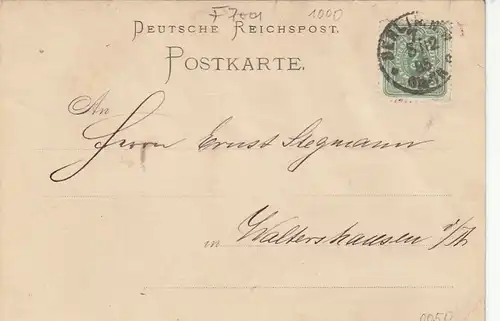 1000
DEUTSCHE REICHSPOST.
POSTKARTE.
An
Herrn Ernst Stegmann
in Waltershausen i/Th
BERLIN